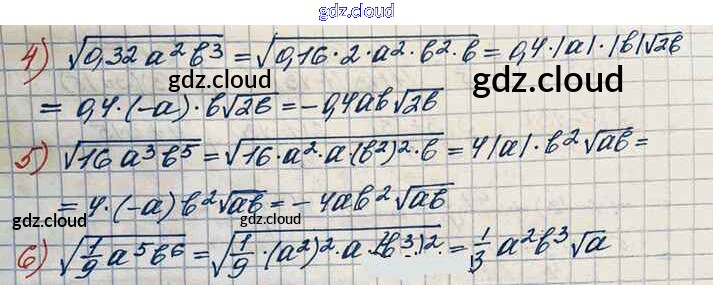 gdz.cloud
4) √(0,32a²b³) = √(0,16·2·a²·b²·b) = 0,4·|a|·|b|√2b
gdz.cloud gdz.cloud
= 0,4·(-a)·b√2b = -0,4ab√2b
5) √(16a³b⁵) = √(16·a²·a(b²)²·b) = 4|a|·b²√ab =
= 4·(-a)b²√ab = -4ab²√ab
gdz.cloud gdz.cloud
6) √(1/9 a⁵b⁶) = √(1/9·(a²)²·a·(b³)²) = 1/3 a²b³√a
gdz.cloud